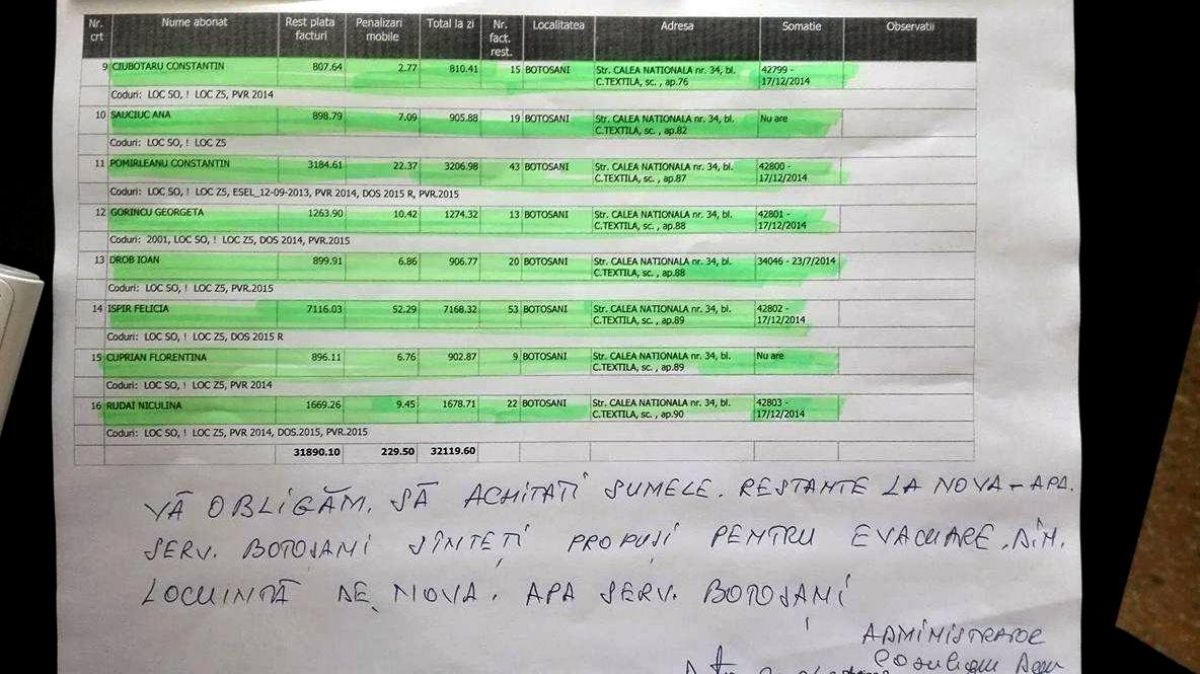 Nr. crt Nume abonat Rest plata facturi Penalizari mobile Total la zi Nr. fact. rest. Localitatea Adresa Somatie Observatii
9 CIUBOTARU CONSTANTIN 807.64 2.77 810.41 15 BOTOSANI Str. CALEA NATIONALA nr. 34, bl. C.TEXTILA, sc. , ap.76 42799 - 17/12/2014
Coduri: LOC SO, ! LOC Z5, PVR 2014
10 SAUCIUC ANA 898.79 7.09 905.88 19 BOTOSANI Str. CALEA NATIONALA nr. 34, bl. C.TEXTILA, sc. , ap.82 Nu are
Coduri: LOC SO, ! LOC Z5
11 POMIRLEANU CONSTANTIN 3184.61 22.37 3206.98 43 BOTOSANI Str. CALEA NATIONALA nr. 34, bl. C.TEXTILA, sc. , ap.87 42800 - 17/12/2014
Coduri: LOC SO, ! LOC Z5, ESEL_12-09-2013, PVR 2014, DOS 2015 R, PVR.2015
12 GORINCU GEORGETA 1263.90 10.42 1274.32 13 BOTOSANI Str. CALEA NATIONALA nr. 34, bl. C.TEXTILA, sc. , ap.88 42801 - 17/12/2014
Coduri: 2001, LOC SO, ! LOC Z5, DOS 2014, PVR.2015
13 DROB IOAN 899.91 6.86 906.77 20 BOTOSANI Str. CALEA NATIONALA nr. 34, bl. C.TEXTILA, sc. , ap.88 34046 - 23/7/2014
Coduri: LOC SO, ! LOC Z5, PVR.2015
14 ISPIR FELICIA 7116.03 52.29 7168.32 53 BOTOSANI Str. CALEA NATIONALA nr. 34, bl. C.TEXTILA, sc. , ap.89 42802 - 17/12/2014
Coduri: LOC SO, ! LOC Z5, DOS 2015 R
15 CUPRIAN FLORENTINA 896.11 6.76 902.87 9 BOTOSANI Str. CALEA NATIONALA nr. 34, bl. C.TEXTILA, sc. , ap.89 Nu are
Coduri: LOC SO, ! LOC Z5, PVR 2014
16 RUDAI NICULINA 1669.26 9.45 1678.71 22 BOTOSANI Str. CALEA NATIONALA nr. 34, bl. C.TEXTILA, sc. , ap.90 42803 - 17/12/2014
Coduri: LOC SO, ! LOC Z5, PVR 2014, DOS.2015, PVR.2015
31890.10 229.50 32119.60
VĂ OBLIGĂM. SĂ ACHITATI SUMELE. RESTANTE LA NOVA-APA.
SERV. BOTOȘANI SÎNTEȚI PROPUȘI PENTRU EVACUARE. DIN.
LOCUINTĂ DE NOVA. APA SERV. BOTOȘANI
ADMINISTRATOR